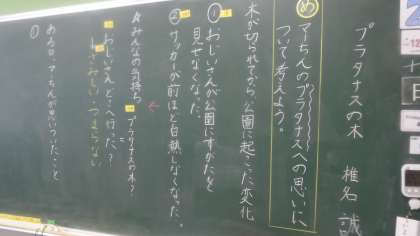 プラタナスの木
椎名 誠
め
マーちんのプラタナスへの思いに
ついて考えよう。
木が切られてから公園に起こった変化
① おじいさんが公園にすがたを
見せなくなった。
② サッカーが前ほど白熱しなくなった。
みんなの気持ち
プラタナスの木？
=
おじいさんどこへ行った？
さみしい・つまらない
① ある日、マーちんが思いついたこと